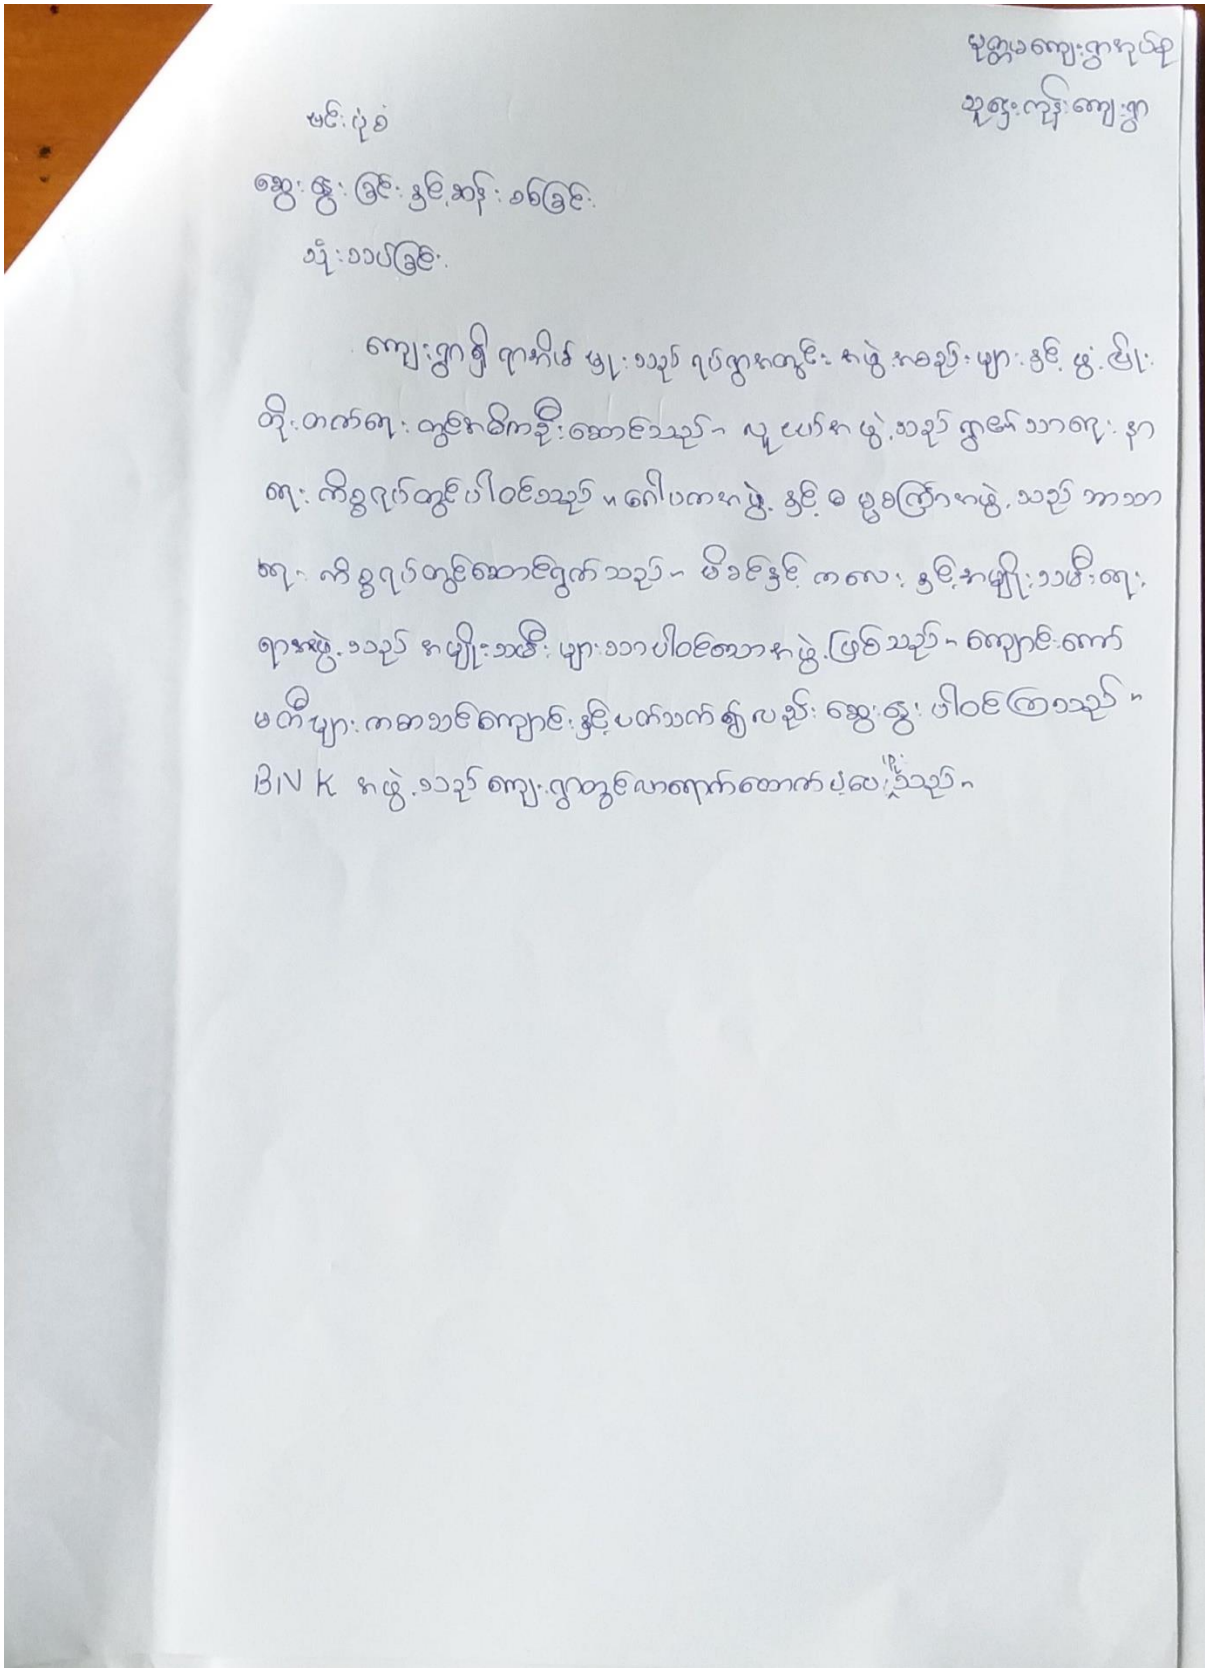 မုတ္တမကျေးရွာအုပ်စု
သူဌေးကုန်းကျေးရွာ
ဗင်းပုံစံ
ဆွေးနွေးခြင်းနှင့်ဆန်းစစ်ခြင်း
သုံးသပ်ခြင်း
ကျေးရွာရှိ ရာအိမ်မှူးသည် ရပ်ရွာအတွင်း အဖွဲ့အစည်းများနှင့် ဖွံ့ဖြိုး
တိုးတက်ရေးတွင်အဓိကဦးဆောင်သည်။ လူငယ်အဖွဲ့သည် ရွာ၏သာရေးနာ
ရေးကိစ္စရပ်တွင်ပါဝင်သည်။ ဂေါပကအဖွဲ့နှင့် ဓမ္မစကြာအဖွဲ့သည် ဘာသာ
ရေးကိစ္စရပ်တွင်ဆောင်ရွက်သည်။ မိခင်နှင့်ကလေးနှင့်အမျိုးသမီးရေး
ရာအဖွဲ့သည် အမျိုးသမီးများသာပါဝင်သောအဖွဲ့ဖြစ်သည်။ ကျောင်းကော်
မတီများကစာသင်ကျောင်းနှင့်ပတ်သက်၍လည်း ဆွေးနွေးပါဝင်ကြသည်။
BNK အဖွဲ့သည် ကျေးရွာတွင်လာရောက်ထောက်ပံ့ပေးသည်။